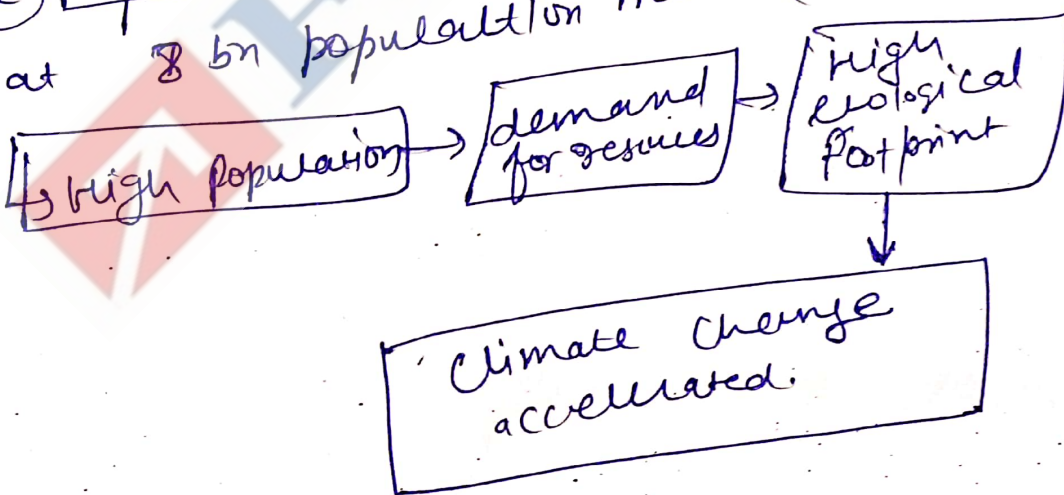 at 8 bn population
High Population
demand
for resources
High
ecological
Footprint
Climate Change
accelerated.